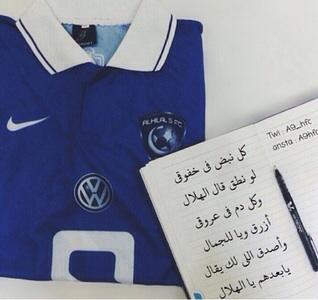 ALHILAL S.FC
Twi : A9_hfc
ansta : A9hfc
كل نبض في خفوقي
لو نطق قال الهلال
وكل دم في عروقي
أزرق وبا للجمال
وأصدق اللي لك يقال
يابعدهم يا الهلال